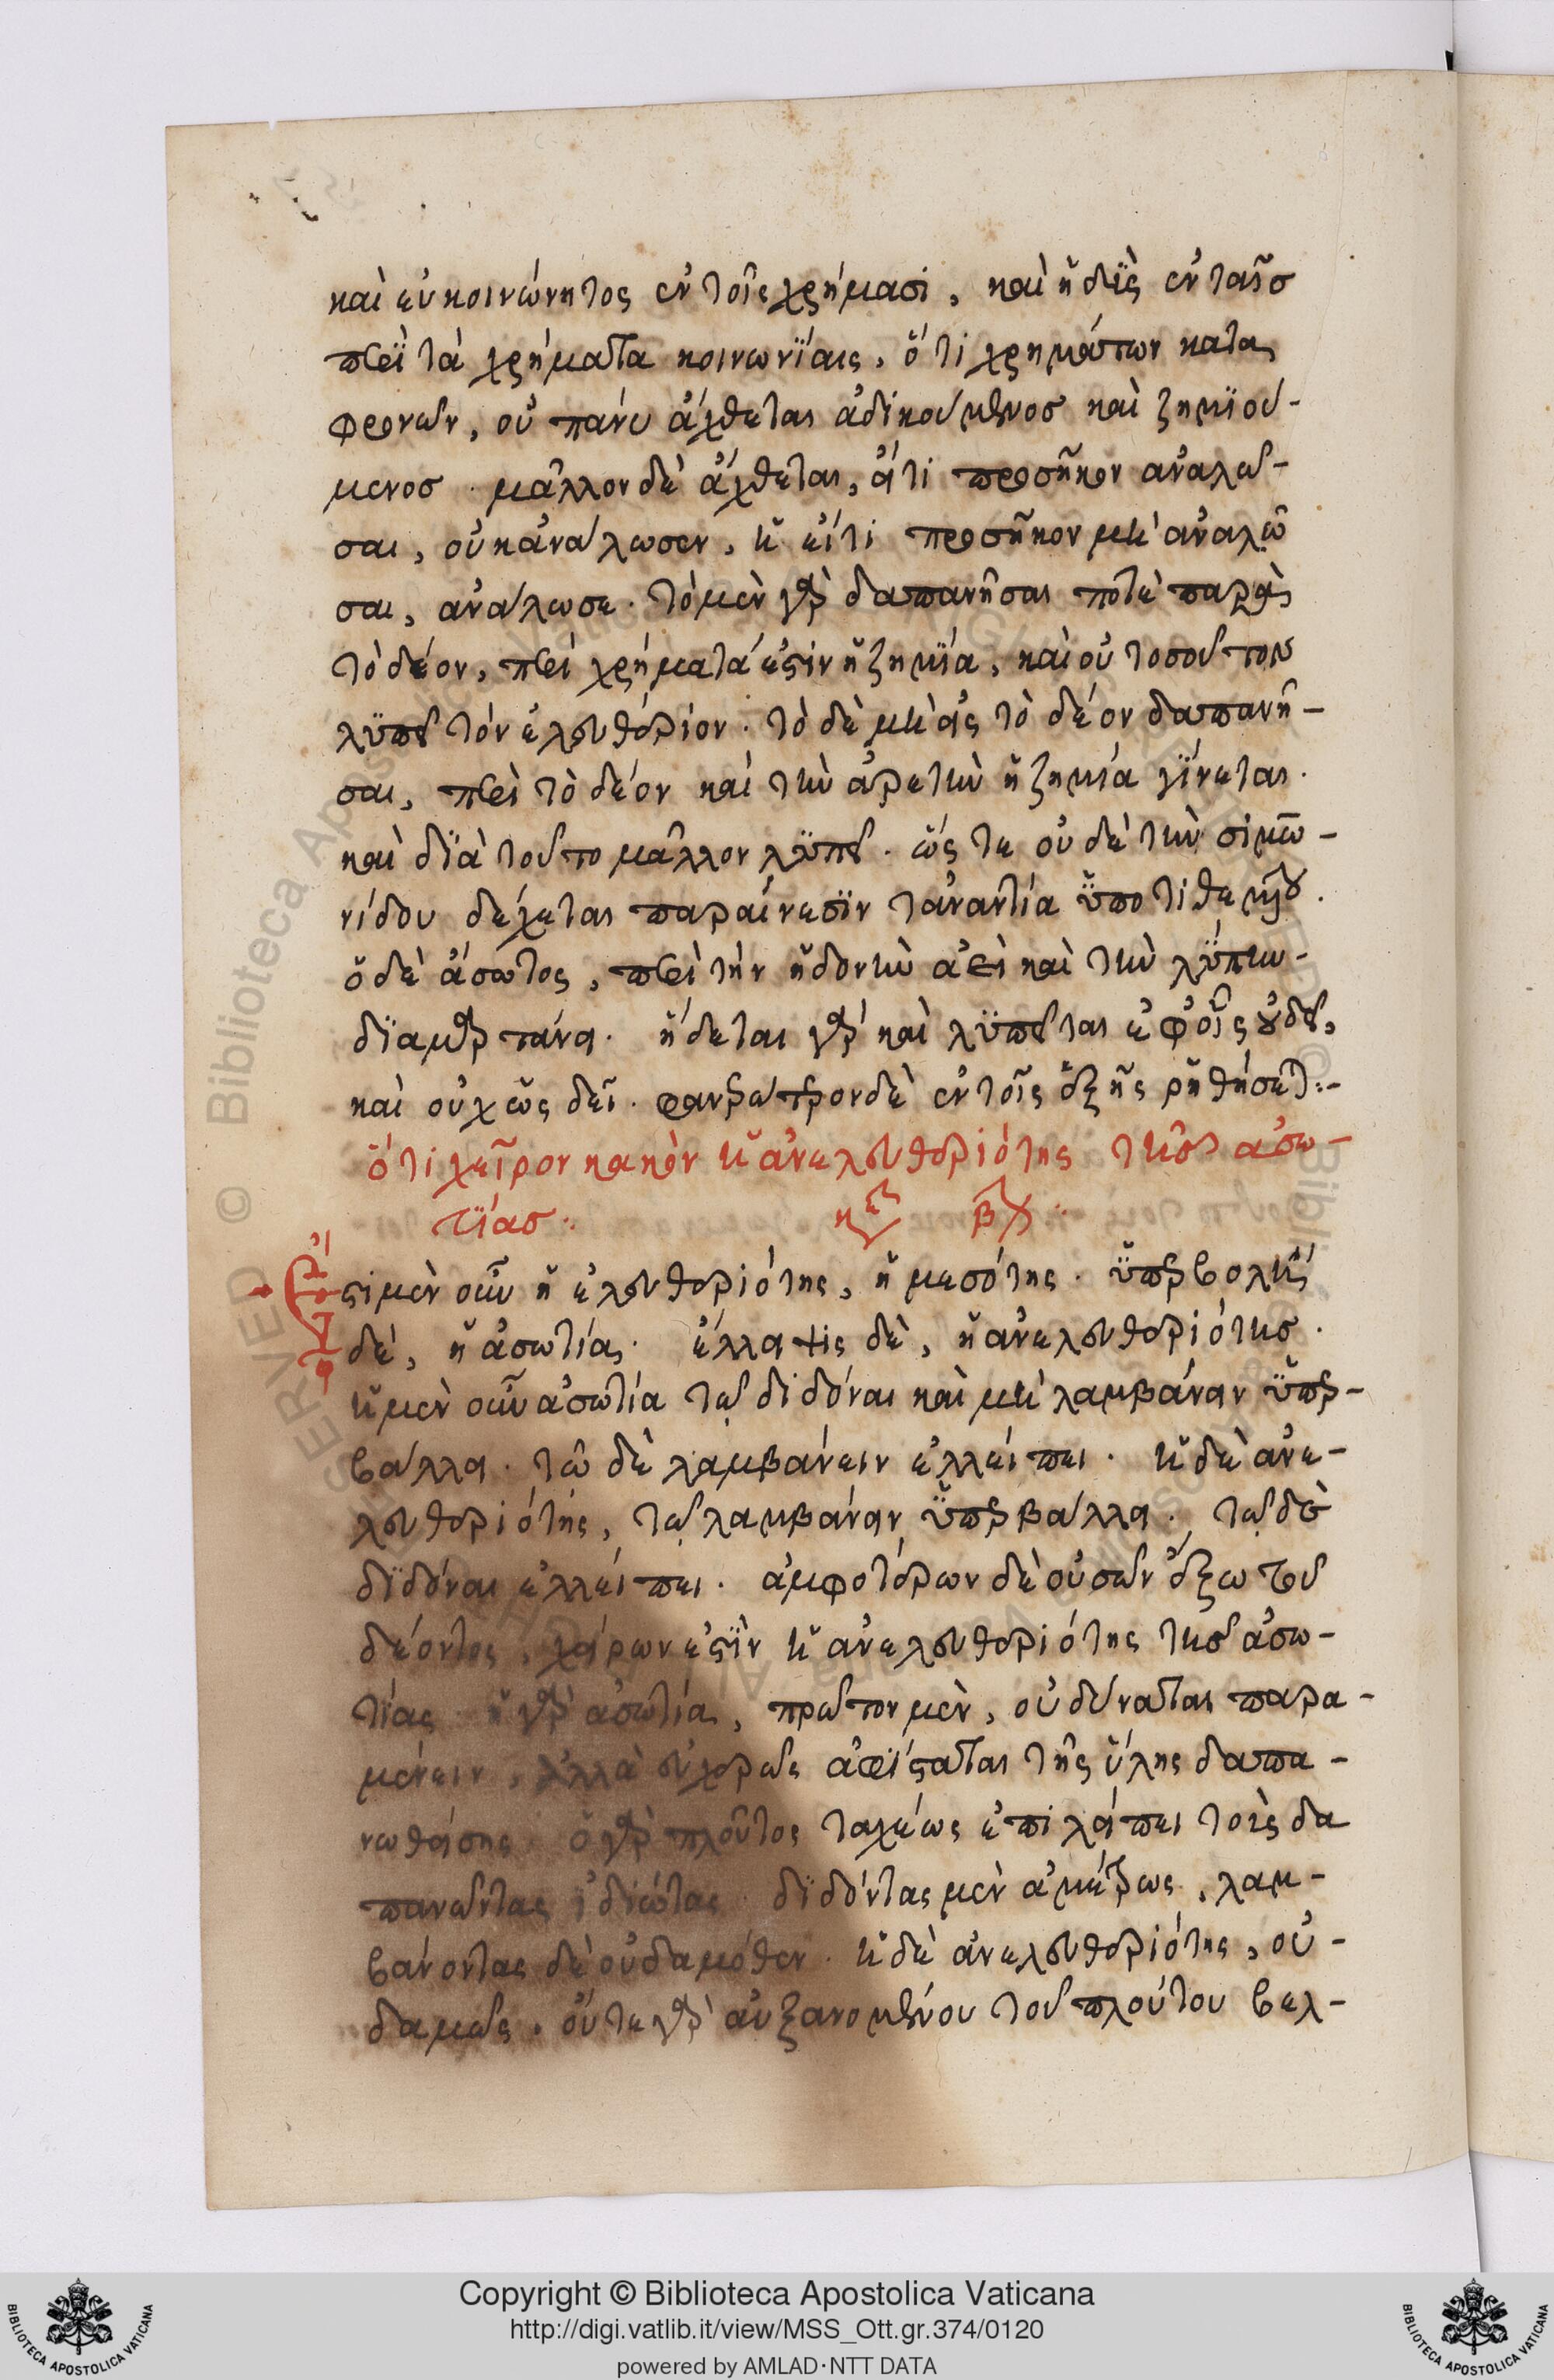 καὶ εὐκοινώνητος ἐν τοῖς χρήμασι, καὶ ἡδὺς ἐν ταῖσ
περὶ τὰ χρήματα κοινωνίαις, ὅτι χρημάτων κατα
φρονῶν, οὐ πάνυ ἄχθεται ἀδικούμενοσ καὶ ζημιού-
μενοσ. μᾶλλον δὲ ἄχθεται, εἴ τι προσῆκον ἀναλῶ-
σαι, οὐκ ἀνάλωσεν, ἢ εἴ τι προσῆκον μὴ ἀναλῶ
σαι, ἀνάλωσε. τὸ μὲν γὰρ δαπανῆσαι ποτὲ παρὰ
τὸ δέον, περὶ χρήματά ἐστιν ἡ ζημία, καὶ οὐ τοσοῦτον
λυπεῖ τὸν ἐλευθέριον. τὸ δὲ μὴ εἰς τὸ δέον δαπανῆ-
σαι, περὶ τὸ δέον καὶ τὴν ἀρετὴν ἡ ζημία γίνεται.
καὶ διὰ τοῦτο μᾶλλον λυπεῖ. ὥστε οὐδὲ τὴν σιμω-
νίδου δέχεται παραίνεσιν τἀναντία ὑποτιθεμένου.
ὁ δὲ ἄσωτος, περὶ τὴν ἡδονὴν ἀεὶ καὶ τὴν λύπην-
διαμαρτάνει. ἥδεται γὰρ καὶ λυπεῖται ἐφ' οἷς οὐ δεῖ,
καὶ οὐχ ὡς δεῖ. φανερώτερον δὲ ἐν τοῖς ἑξῆς ῥηθήσεται:-
ὅτι χεῖρον κακὸν ἡ ἀνελευθεριότης τῆσ ἀσω-
τίασ..
ἔστι μὲν οὖν ἡ ἐλευθεριότης, ἡ μεσότης. ὑπερβολὴ
δὲ, ἡ ἀσωτία. ἔλλειψις δὲ, ἡ ἀνελευθεριότησ.
ἡ μὲν οὖν ἀσωτία τῷ διδόναι καὶ μὴ λαμβάνειν ὑπερ-
βάλλει. τῷ δὲ λαμβάνειν ἐλλείπει. ἡ δὲ ἀνε-
λευθεριότης, τῷ λαμβάνειν ὑπερβάλλει. τῷ δὲ
διδόναι ἐλλείπει. ἀμφοτέρων δὲ οὐσῶν ἔξω τοῦ
δέοντος, χείρων ἐστὶν ἡ ἀνελευθεριότης τῆσ ἀσω-
τίας. ἡ γὰρ ἀσωτία, πρῶτον μὲν, οὐ δύναται παρα-
μένειν, ἀλλὰ εὐχερῶς ἀφίσταται τῆς ὕλης δαπα-
νωθείσης. ὁ γὰρ πλοῦτος ταχέως ἐπιλείπει τοὺς δα
πανῶντας ἰδιώτας. διδόντας μὲν ἀμέτρως, λαμ-
βάνοντας δὲ οὐδαμόθεν. ἡ δὲ ἀνελευθεριότης, οὐ-
δαμῶς. οὔτε γὰρ αὐξανομένου τοῦ πλούτου βελ-
Copyright © Biblioteca Apostolica Vaticana
http://digi.vatlib.it/view/MSS_Ott.gr.374/0120
powered by AMLAD·NTT DATA
BIBLIOTECA APOSTOLICA VATICANA
BIBLIOTECA APOSTOLICA VATICANA